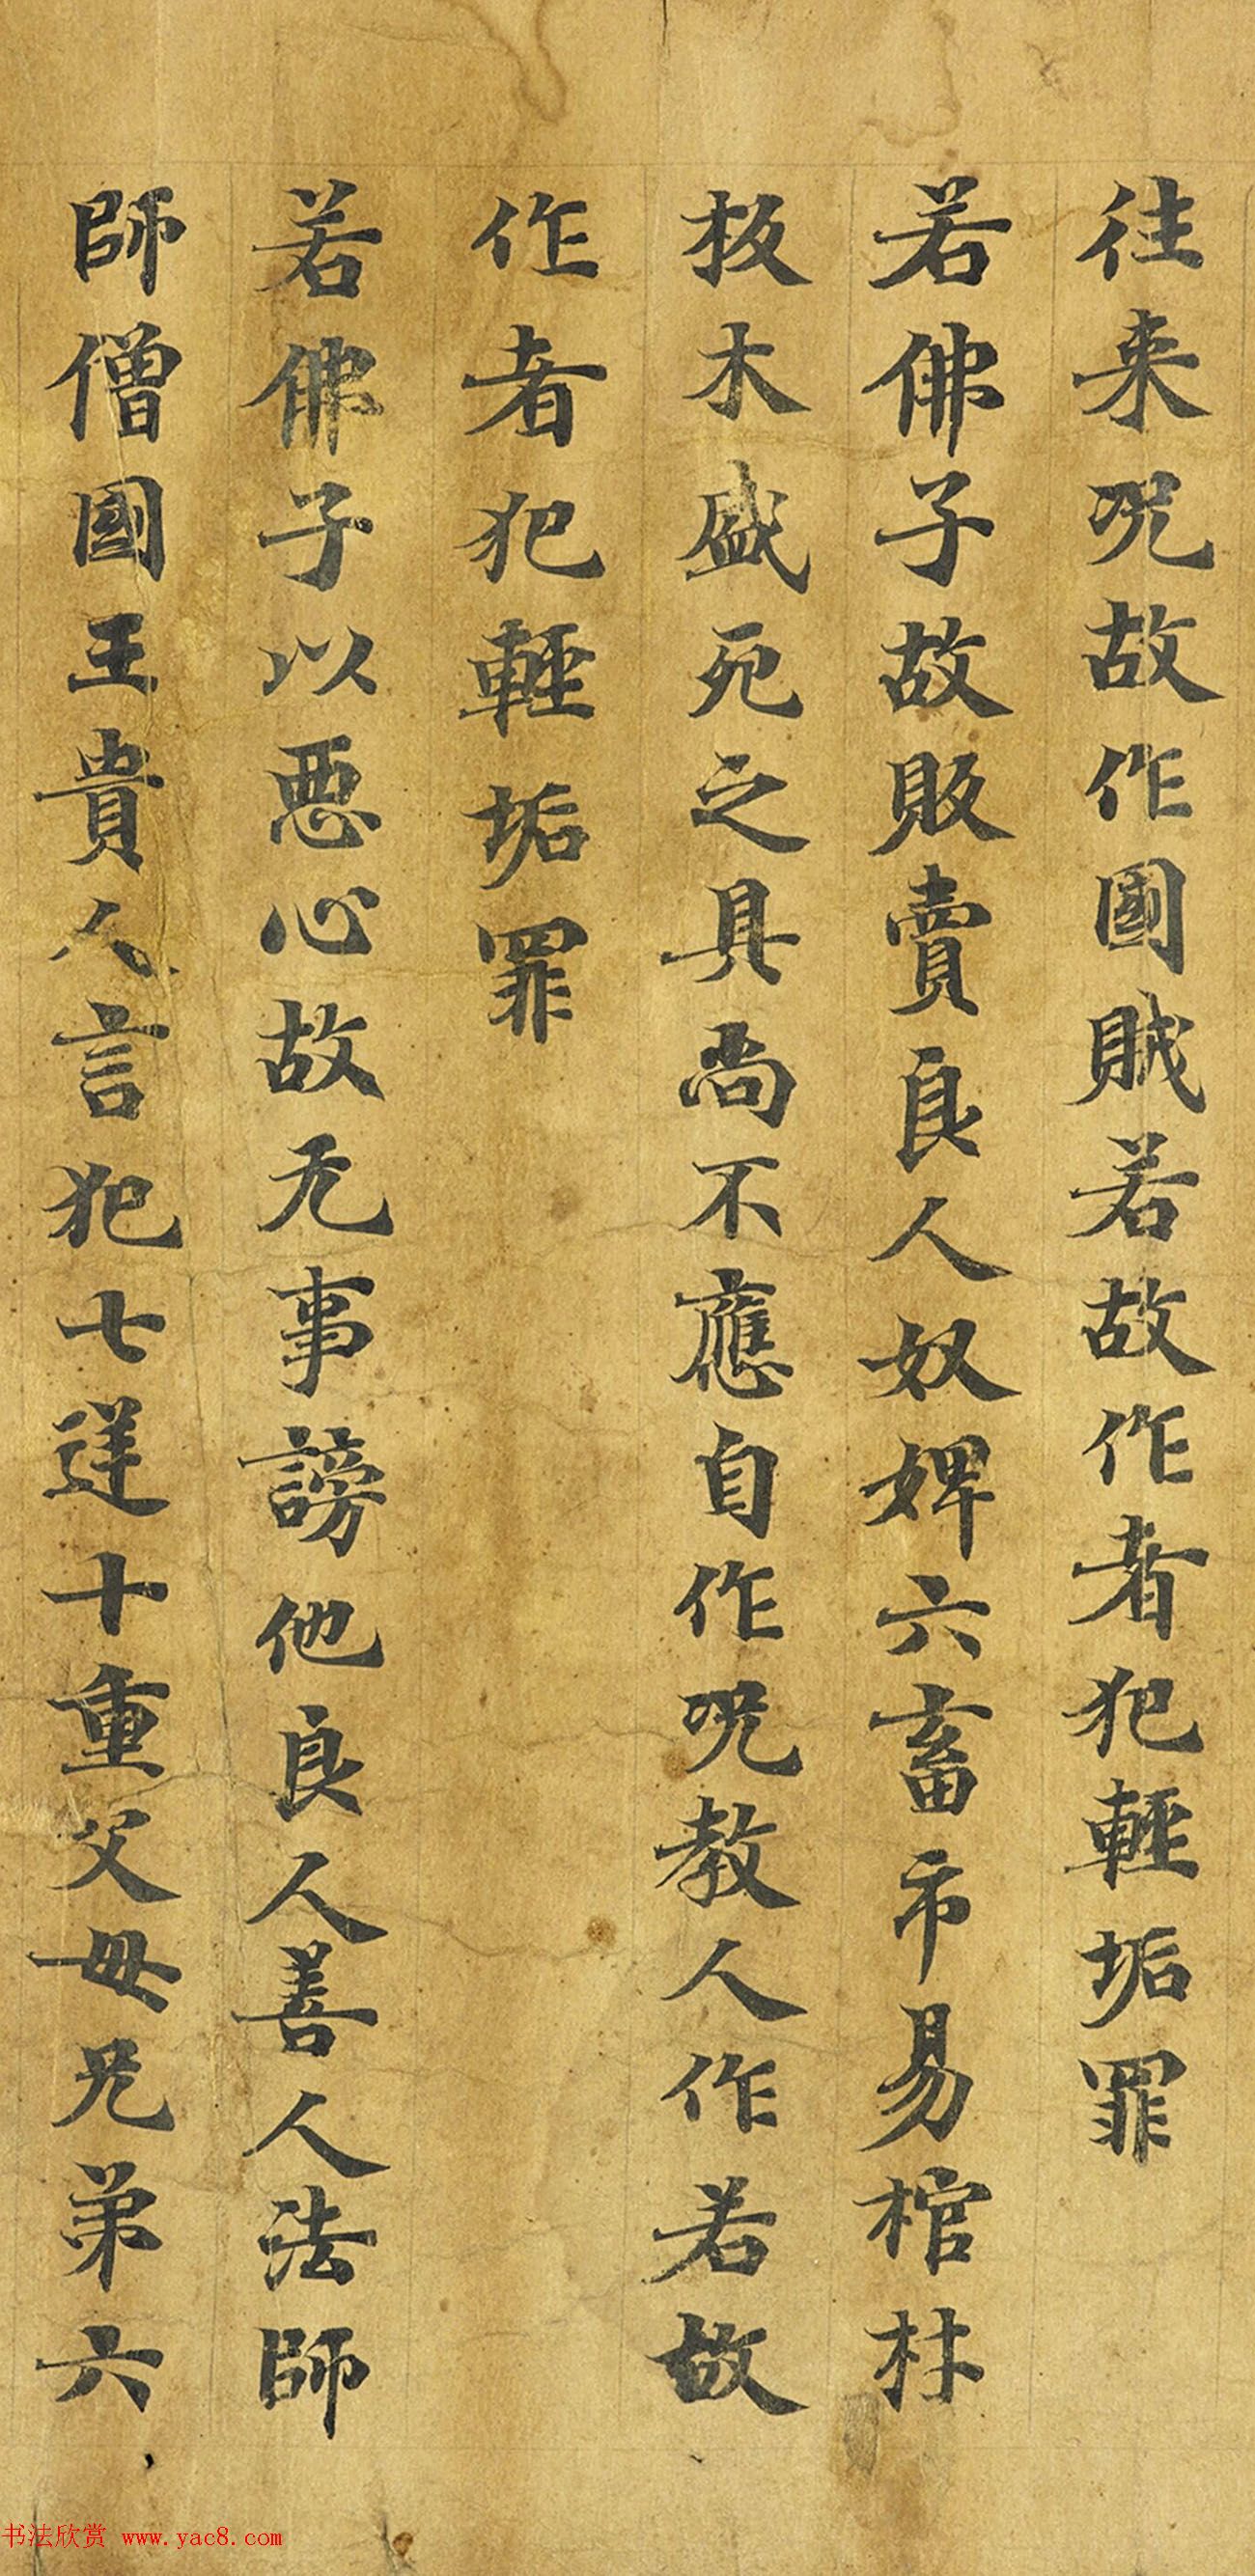 往来呪故作國賊若故作者犯輕垢罪
若佛子故販賣良人奴婢六畜市易棺材
板木盛死之具尚不應自作呪教人作若故
作者犯輕垢罪
若佛子以惡心故无事謗他良人善人法師
師僧國王貴人言犯七逆十重父母兄弟六
书法欣赏 www.yac8.com